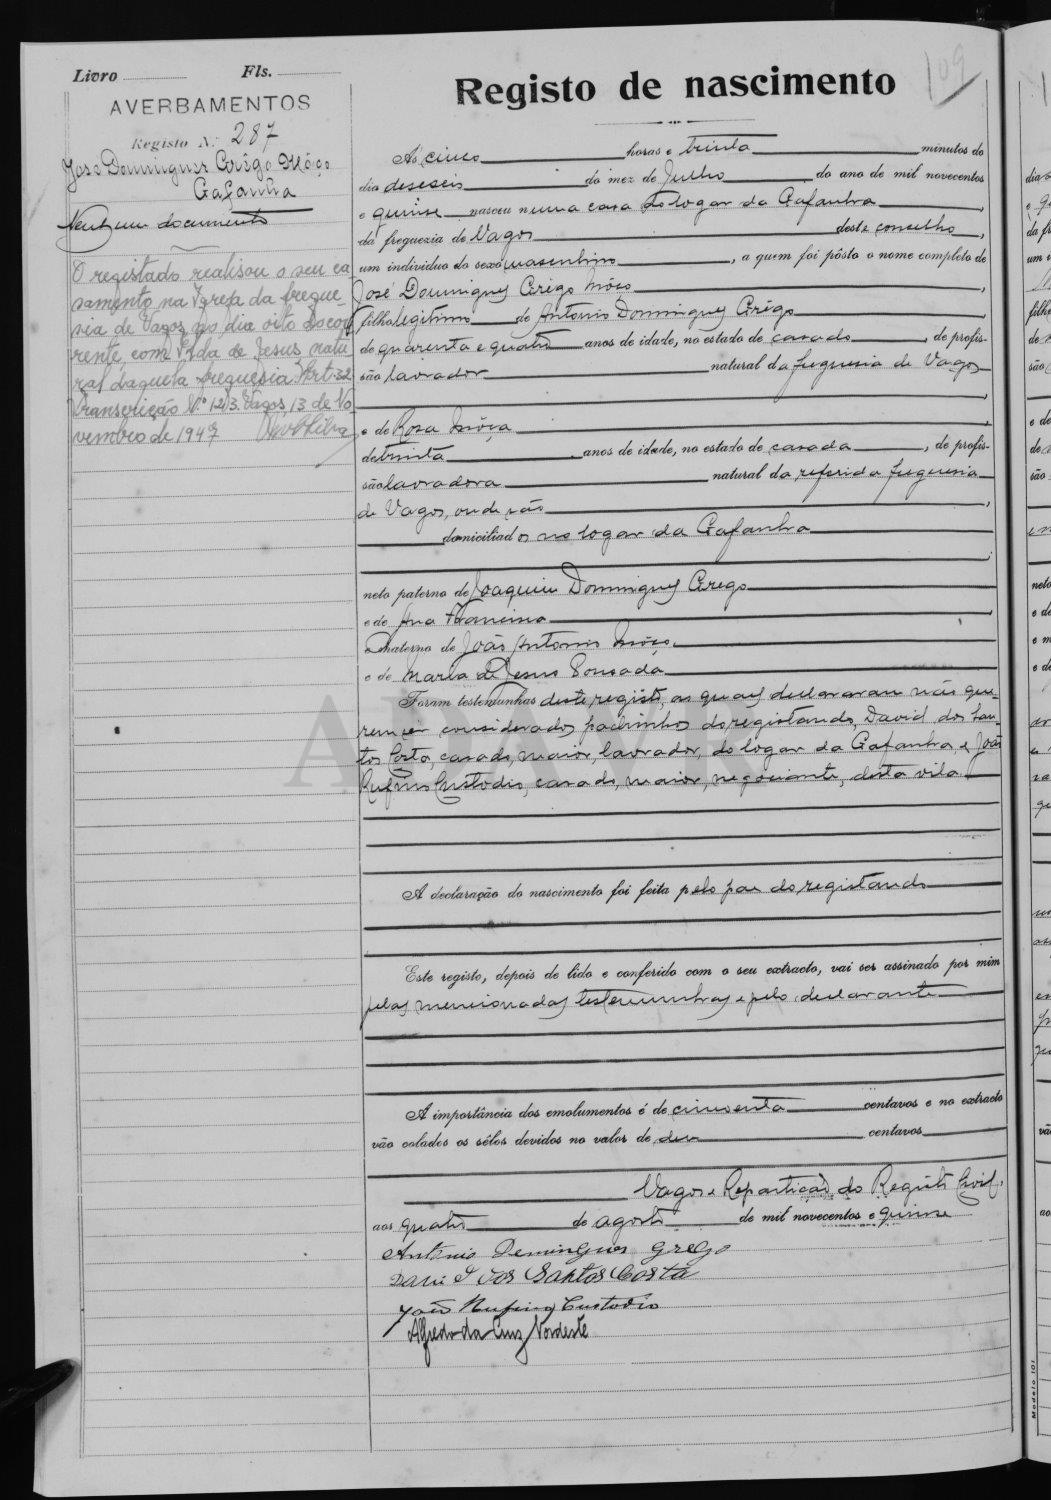 Livro Fls.
AVERBAMENTOS
Registo N.º 287
José Domingues Grêgo Môço
Gafanha
Nenhum documento
O registado realisou o seu ca-
samento na Igreja da fregue-
sia de Vagos no dia oito do cor-
rente, com Elda de Jesus, natu
ral daquela freguesia. Art. 32
Transcrição N.º 123. Vagos, 13 de No
vembro de 1947
109
Registo de nascimento
Ás cinco horas e trinta minutos do
dia deseseis do mez de Julho do ano de mil novecentos
e quinse nasceu numa casa do logar da Gafanha,
da freguezia de Vagos deste concelho,
um individuo do sexo masculino, a quem foi pôsto o nome completo de
José Domingues Grego Môço,
filho legitimo de Antonio Domingues Grêgo,
de quarenta e quatro anos de idade, no estado de casado, de profis-
são lavrador natural da freguesia de Vagos
e de Rosa Môça,
de trinta anos de idade, no estado de casada, de profis-
são lavradora natural da referida freguesia
de Vagos, onde são,
domiciliados no logar da Gafanha
neto paterno de Joaquim Domingues Grego
e de Ana Francisca,
e materno de João Antonio Môço,
e de Maria de Jesus Pousada
Foram testemunhas deste registo, os quaes declararam não que-
rem ser considerados padrinhos do registando, David dos San-
tos Costa, casado, maior, lavrador, do logar da Gafanha, e João
Rufino Custodio, casado, maior, negociante, desta vila
A declaração do nascimento foi feita pelo pae do registando
Este registo, depois de lido e conferido com o seu extracto, vai ser assinado por mim
pelas mencionadas testemunhas e pelo declarante
A importância dos emolumentos é de cincoenta centavos e no extracto
vão colados os sêlos devidos no valor de dez centavos
Vagos e Repartição do Registo Civil,
aos quatro de agosto de mil novecentos e quinse
António Domingues Grego
David dos Santos Costa
João Rufino Custodio
Alfredo da Cruz Nordeste
Modelo 101